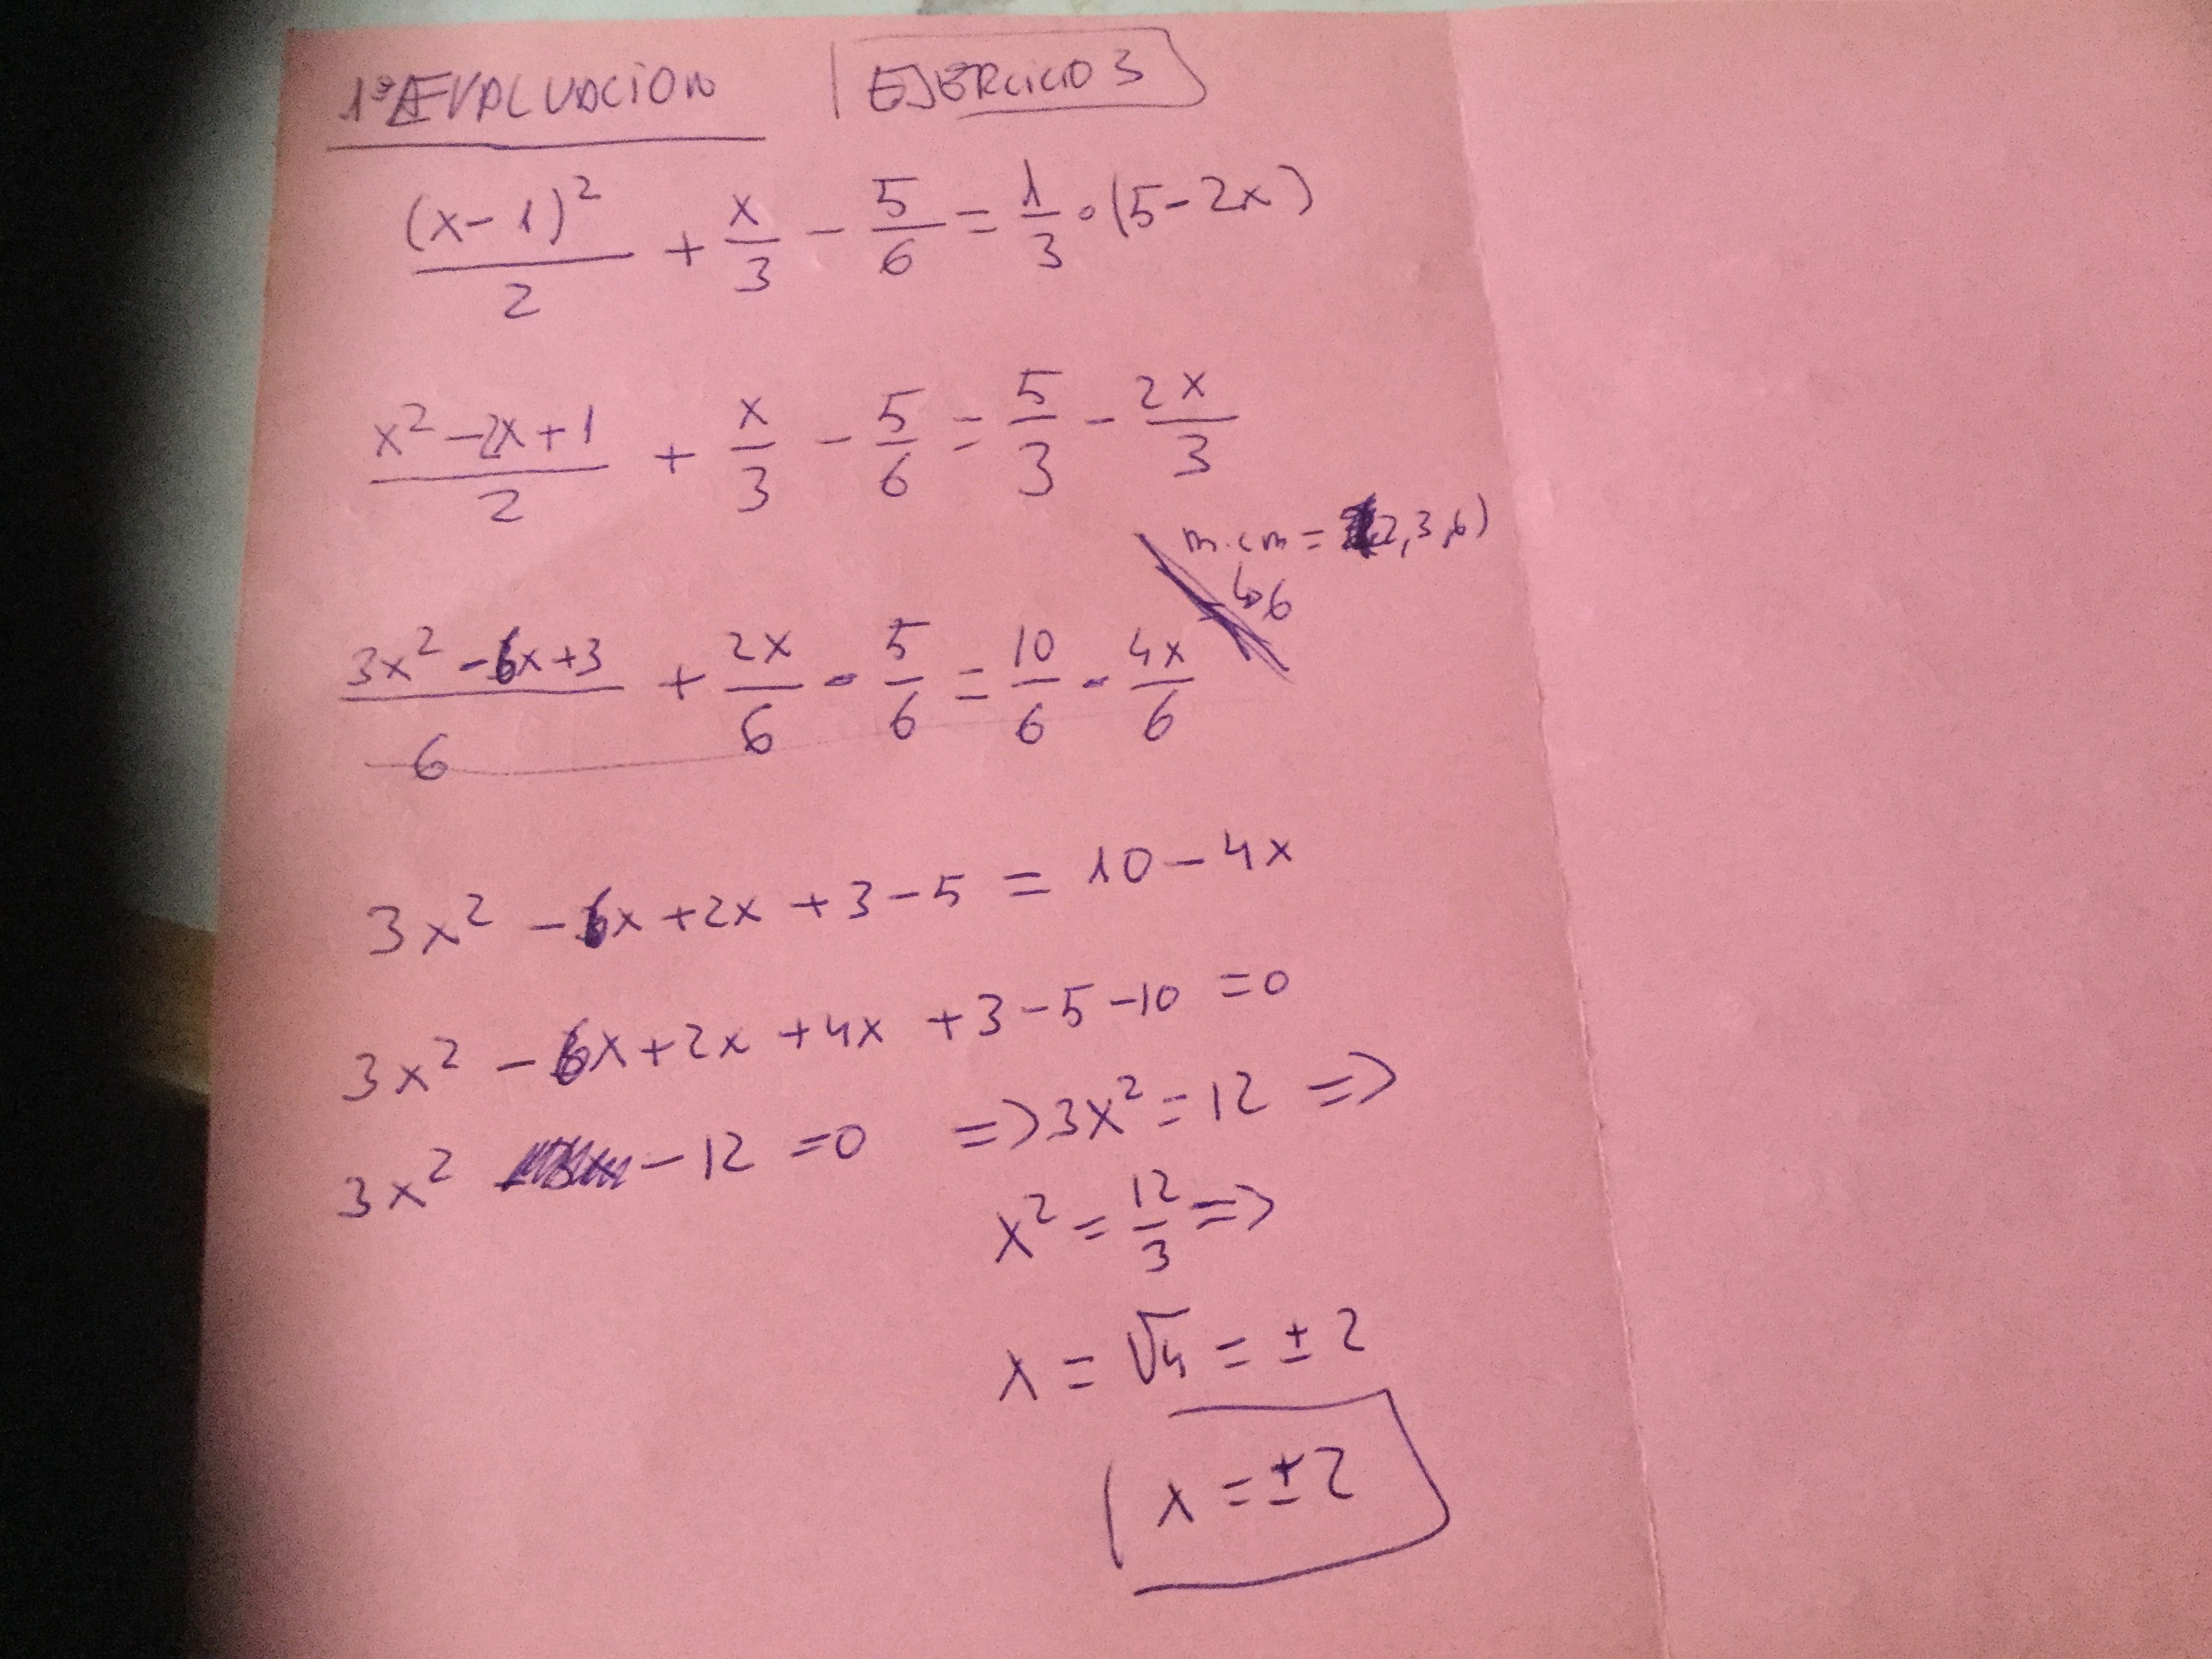 1ª EVALUACION EJERCICIO 3
(x-1)²/2 + x/3 - 5/6 = 1/3 · (5-2x)
x²-2x+1/2 + x/3 - 5/6 = 5/3 - 2x/3
m.cm = 2,3,6)
↳6
3x²-6x+3/6 + 2x/6 - 5/6 = 10/6 - 4x/6
3x² -6x +2x +3-5 = 10-4x
3x² -6x+2x +4x +3-5-10 =0
3x² -12 =0 => 3x²=12 =>
x² = 12/3 =>
x = √4 = ±2
x = ±2